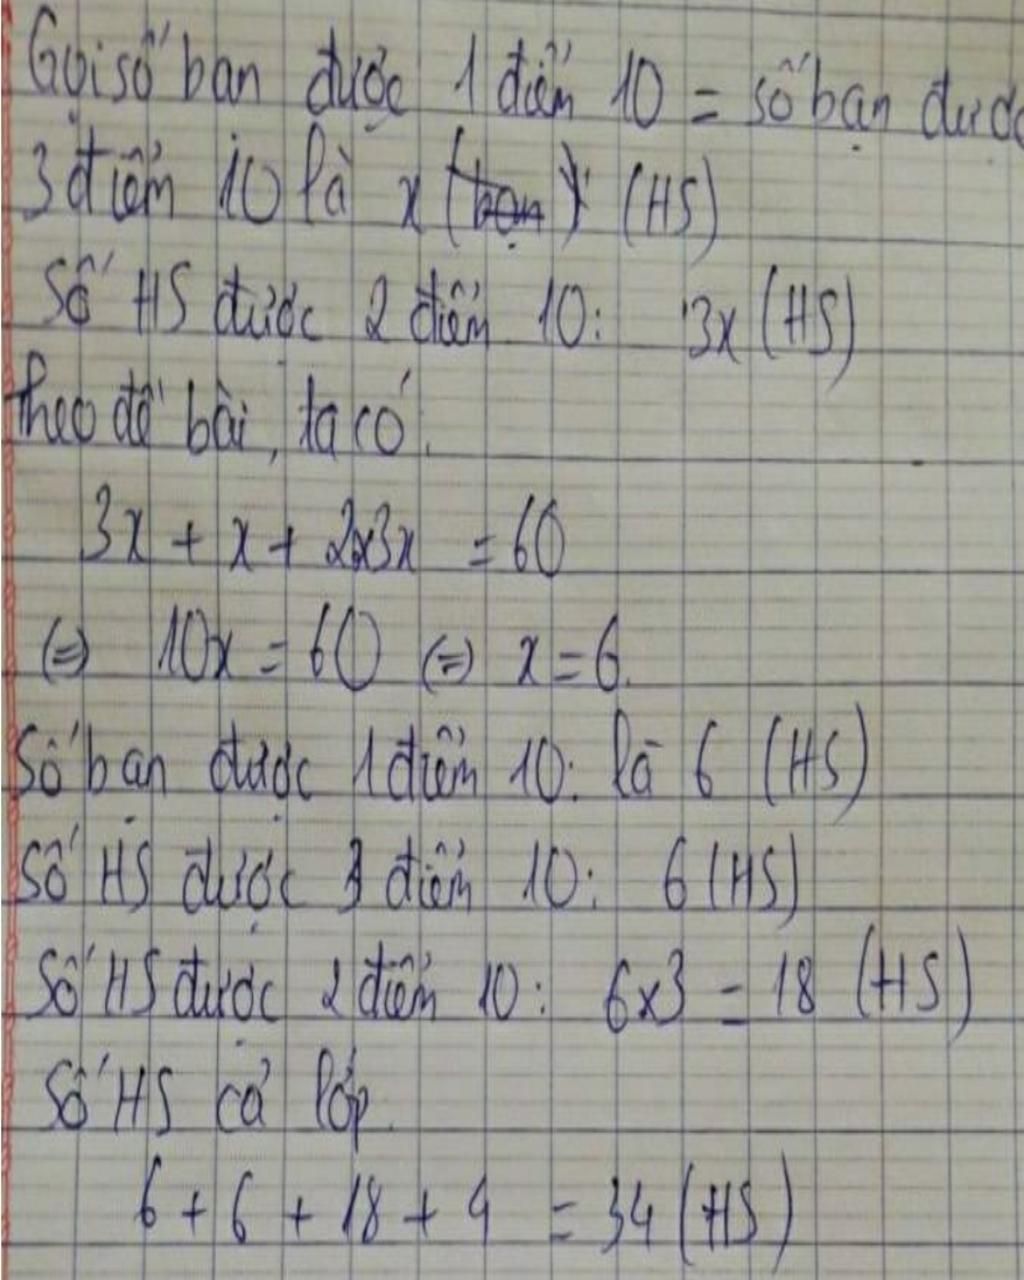 Gọi số bạn được 1 điểm 10 = số bạn được
3 điểm 10 là x (bạn) (HS)
Số HS được 2 điểm 10: 3x (HS)
Theo đề bài, ta có.
3x + x + 2x3x = 60
(=) 10x = 60 (=) x = 6.
Số bạn được 1 điểm 10: là 6 (HS)
Số HS được 3 điểm 10: 6 (HS)
Số HS được 2 điểm 10: 6x3 = 18 (HS)
Số HS cả lớp.
6 + 6 + 18 + 4 = 34 (HS)